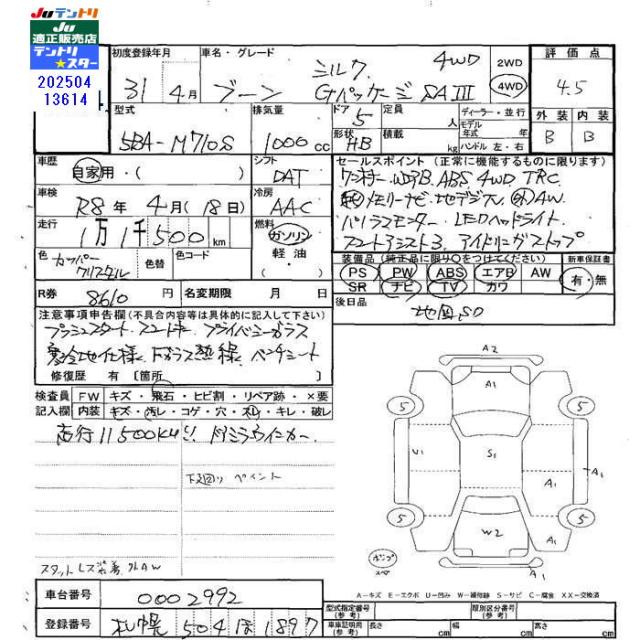 Juテントリ
Ju
適正販売店
テントリ
★スター
202504
13614
初度登録年月
31年4月
車名・グレード
ブーン
シルク 4WD
Gパッケージ SAⅢ
2WD
4WD
評価点
4.5
外装 内装
B B
型式
5BA-M710S
排気量
1000cc
ドア
5
形状
HB
定員
人
積載
kg
ディーラー・並行
モデル年式
年式
ハンドル 左・右
車歴
自家用・( )
シフト
DAT
車検
R8年4月(18日)
冷房
AAC
走行
1万1千500km
燃料
ガソリン
軽油
・( )
色
カッパークリスタル
色替
色コード
R券
8610円
名変期限 月 日
セールスポイント(正常に機能するものに限ります)
ワンオーナー WSRS ABS 4WD TRC
メモリーナビ 地デジTV 外AW
パノラマモニター LEDヘッドライト
スマートアシスト3 アイドリングストップ
装備品(純正品に限り○をつけてください)
PS PW ABS エアB AW
SR ナビ TV カワ
新車保証書
有・無
後日品
地図SD
注意事項申告欄(不具合内容等は具体的に記入して下さい)
プッシュスタート スマートキー プライバシーガラス
寒冷地仕様 Fガラス熱線 ベンチシート
修復歴 有 〔箇所
検査員記入欄
FW キズ・飛石・ヒビ割・リペア跡・×要
内装 キズ・汚レ・コゲ・穴・ネジ・キレ・破レ
走行11500kmより ドアミラウインカー
下廻り ペイント
スタットレス装着 外AW
A2
A1
5
5
U1
S1
A1
A1
5
5
W2
A1
A1
A-キズ E-エクボ U-凹み W-補修跡 S-サビ C-腐食 XX-交換済
車台番号
0002992
登録番号
札幌504ほ1897
型式指定番号(参考)
類別区分番号(参考)
車庫証明用(参考)
長さ cm
幅 cm
高さ cm